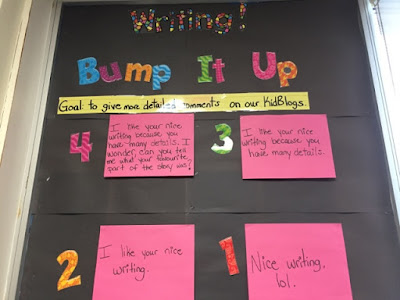 Writing!
Bump It Up
Goal: to give more detailed comments on our KidBlogs.
4
I like your nice
writing because you
have many details. I
wonder, can you tell
me what your favourite
part of the story was?
3
I like your nice
writing because you
have many details.
2
I like your nice
writing.
1
Nice writing,
lol.